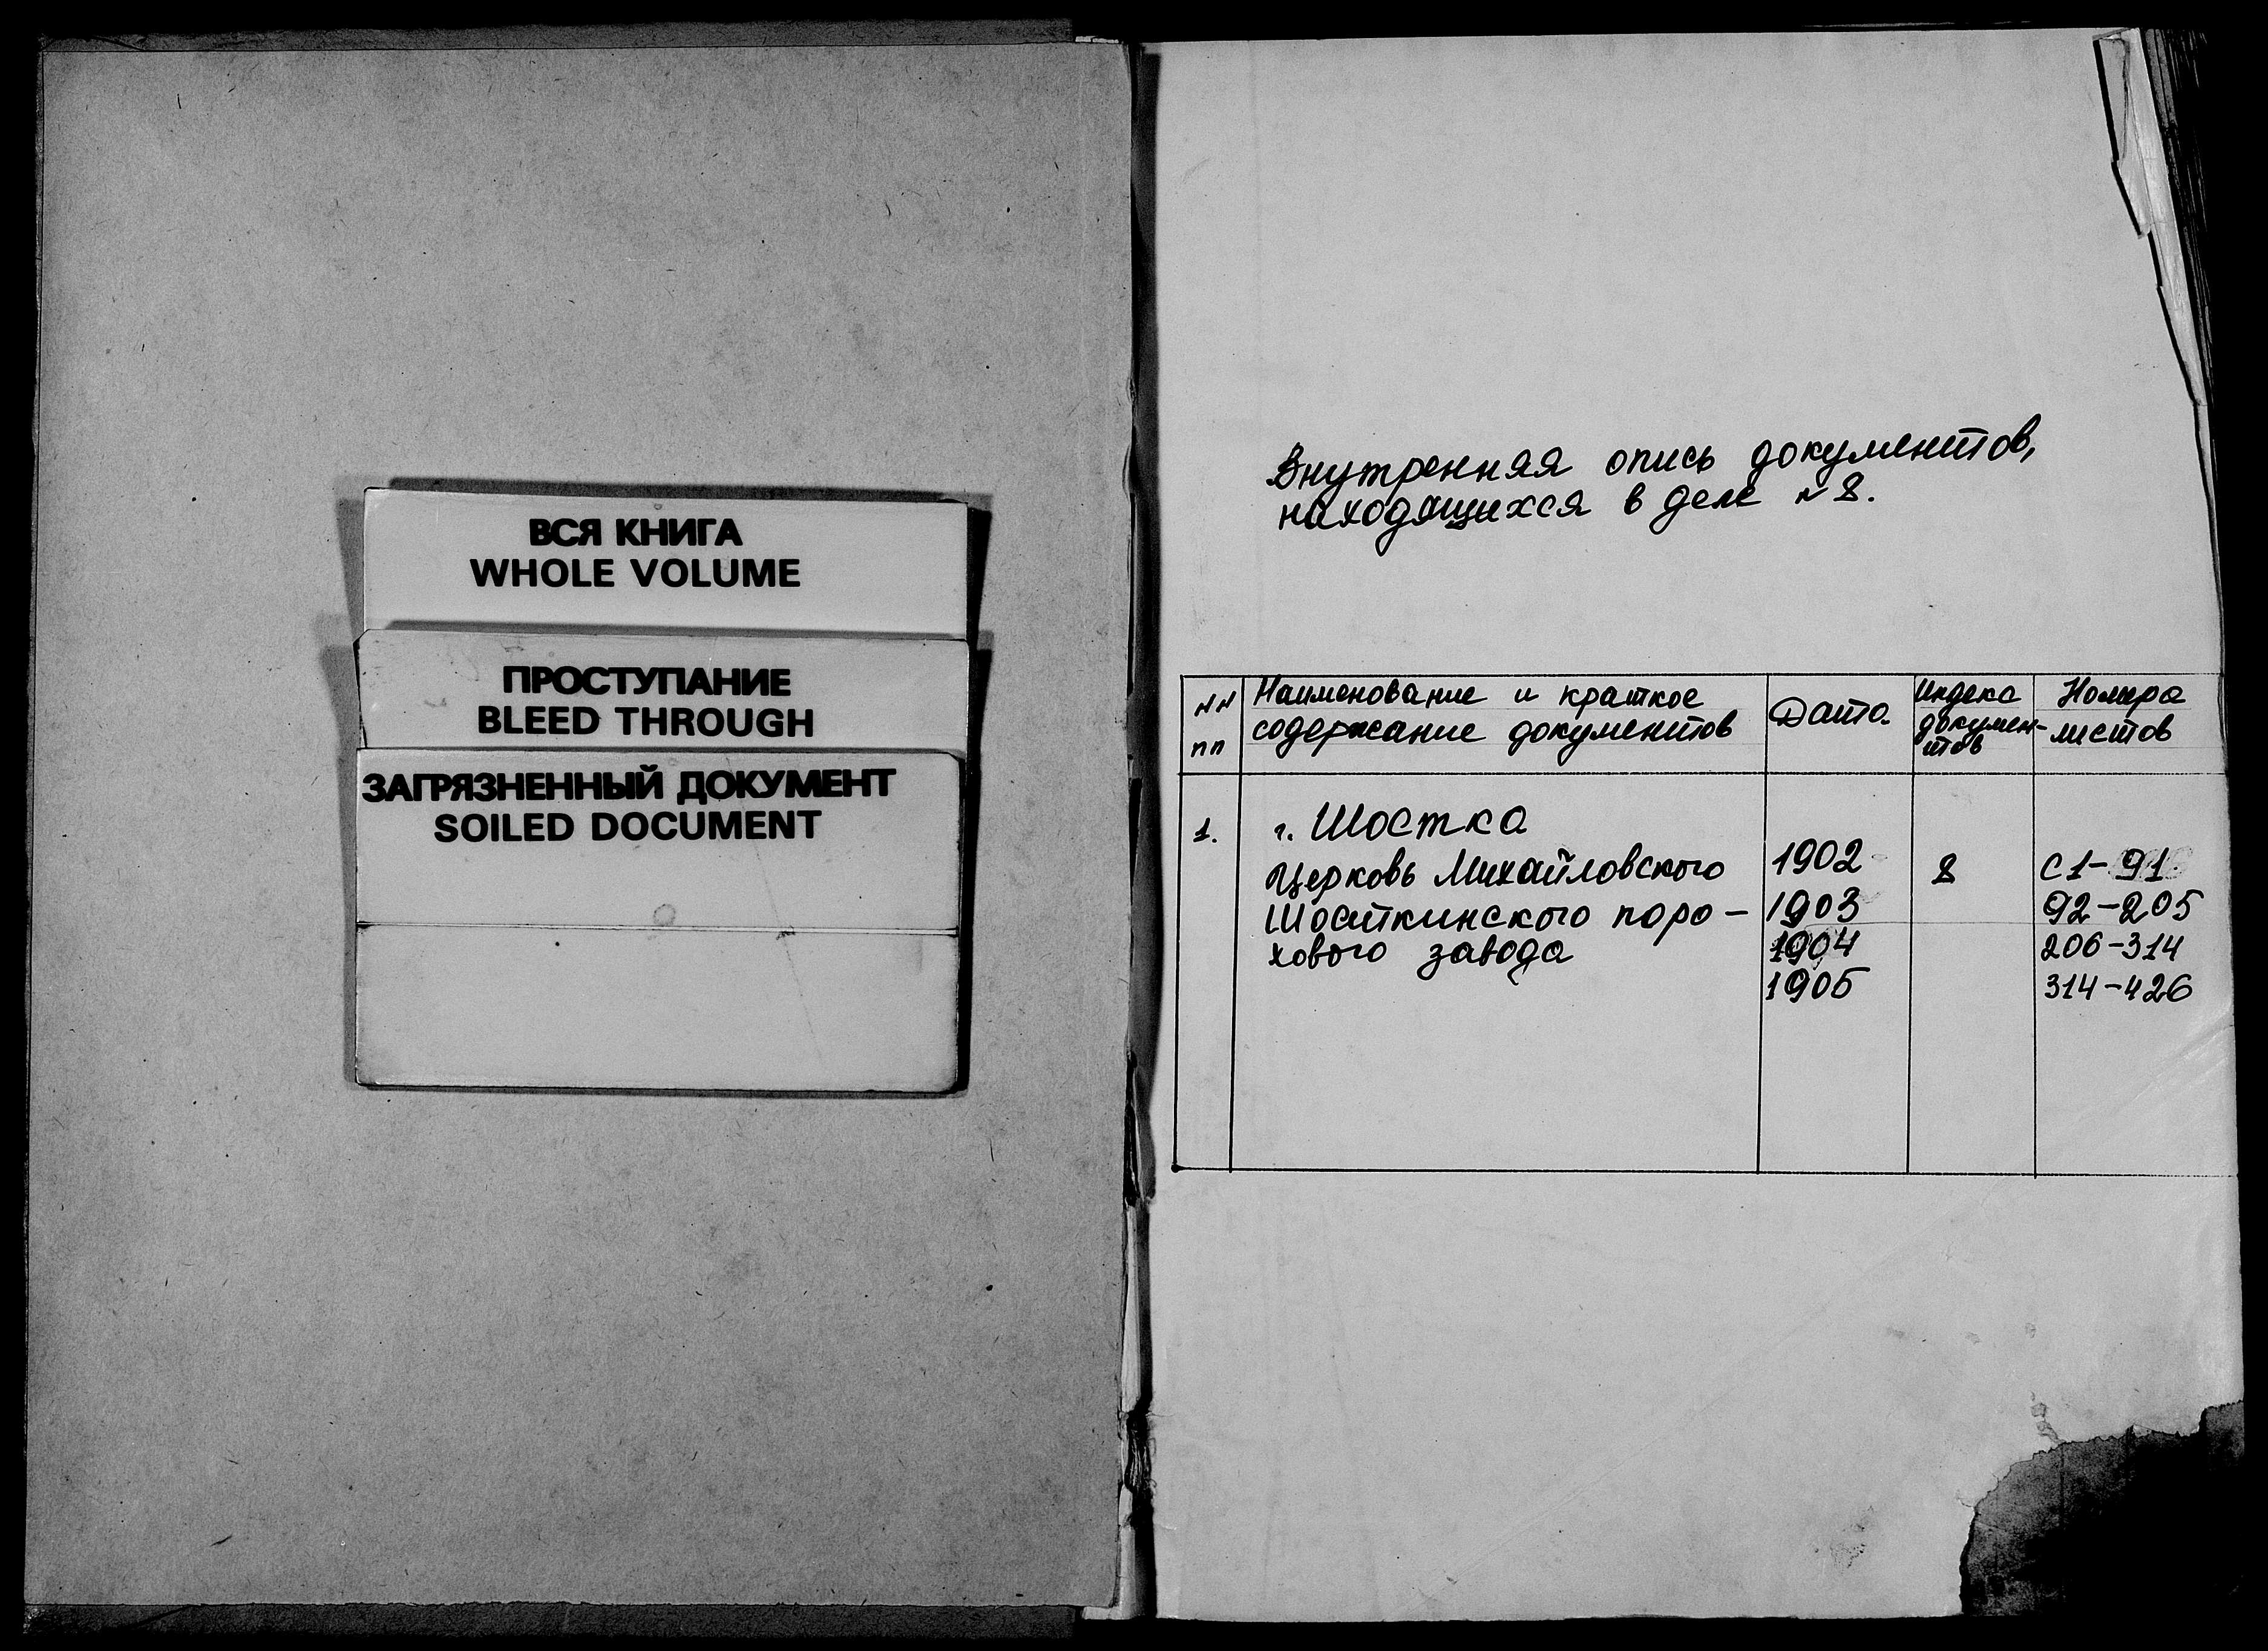 ВСЯ КНИГА
WHOLE VOLUME
ПРОСТУПАНИЕ
BLEED THROUGH
ЗАГРЯЗНЕННЫЙ ДОКУМЕНТ
SOILED DOCUMENT
Внутренняя опись документов,
находящихся в деле № 8.
№№ пп
Наименование и краткое
содержание документов
Дата
Индекс
докумен-
тов
Номера
листов
1.
г. Шостка
Церковь Михайловского
Шосткинского поро-
хового завода
1902
1903
1904
1905
8
с 1-91
92-205
206-314
314-426